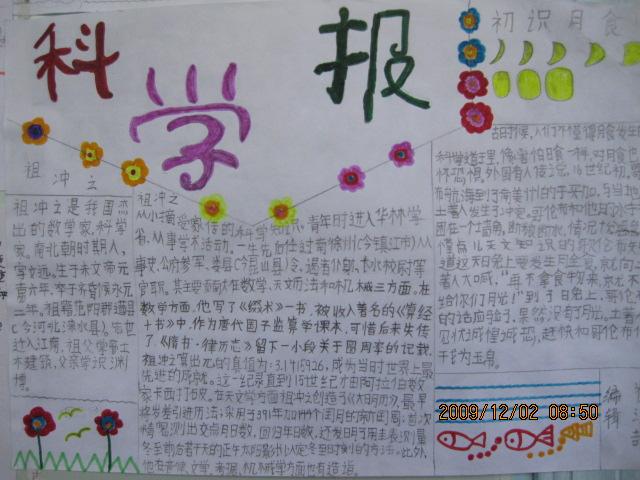 科学报
初识月食
祖冲之
祖冲之是我国杰
出的数学家,科学
家。南北朝时期人,
写文远。生于未文帝元
嘉六年,卒于齐昏侯永元
二年。祖籍范阳郡遒县
(今河北涞水县)。先世
迁入江南,祖父掌土
木建筑,父亲学识渊
博。
祖冲之
从小接受家传的科学知识。青年时进入华林学
省,从事学术活动。一生先后任过南徐州(今镇江市)从
事史、公府参军、娄县(今昆山县)令、谒者仆射、长水校尉等
官职。其主要贡献在数学、天文历法和机械三方面。在
数学方面,他写了《缀术》一书,被收入著名的《算经
十书》中,作为唐代国子监算学课本,可惜后来失传
了《隋书·律历志》留下一小段关于圆周率的记载,
祖冲之算出π的真值为:3.1415926,成为当时世界上最
先进的成就。这一纪录直到15世纪才由阿拉伯数学
家卡西打破。在天文学方面祖冲之创造了《大明历》,最早
将岁差引进历法;采用了391年加144个闰月的新闰周;首次
精密测出交点月日数,回归年日数
冬至前后若干天的正午太阳影长以定冬至时刻的方法。此外,
他在音律、文学、考据、机械学方面也有造诣。
古时候,人们不懂得月食发生
科学道理,像害怕日食一样,对月食也
怀恐惧。外国有人传说,16世纪初,哥
布航海到了南美州的牙买加,与当地
土著人发生了冲突。
团在一个墙角,断粮断水,情况
懂一点儿天文知识的哥伦布
道这天日食上要发生月全食,就向土
著人大喊,“再不拿食物来,就不
给你们月光!”到了日食上,哥伦布
的话应验了,果然没有了月光。土著
见状诚惶诚恐,赶快和哥伦布
干戈为玉帛。
编辑
2009/12/02 08:50